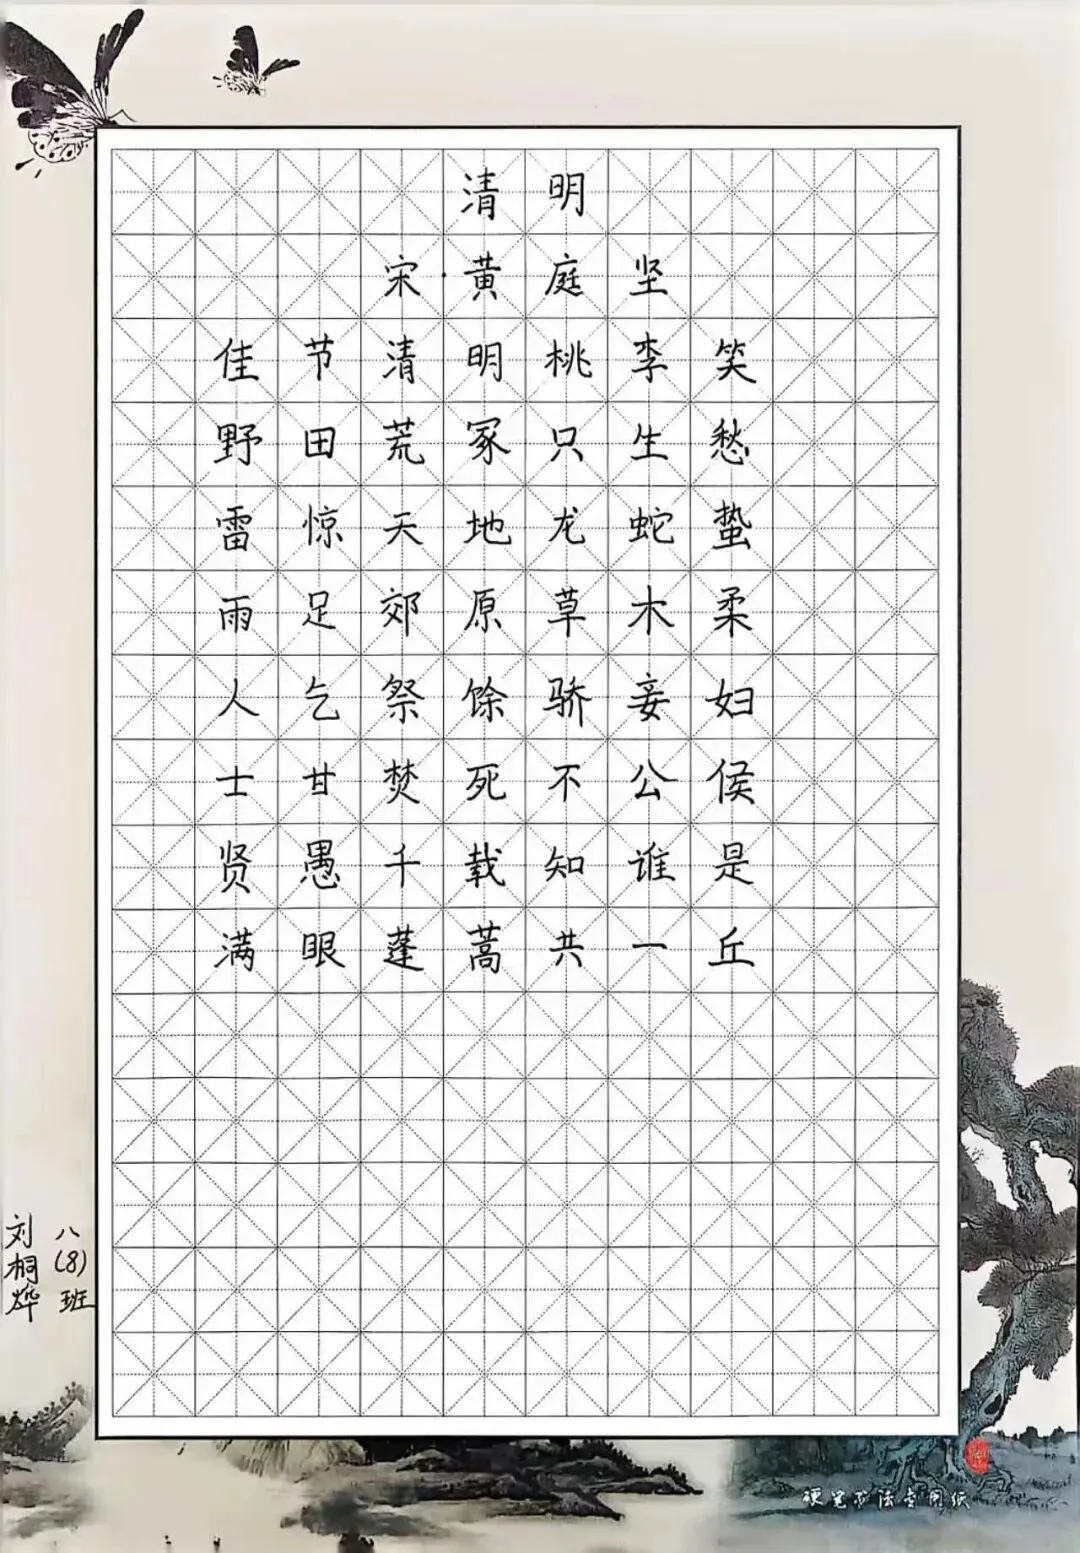 清明
宋·黄庭坚
佳节清明桃李笑
野田荒冢只生愁
雷惊天地龙蛇蛰
雨足郊原草木柔
人乞祭馀骄妾妇
士甘焚死不公侯
贤愚千载知谁是
满眼蓬蒿共一丘
八(8)班
刘桐烨
硬笔书法专用纸